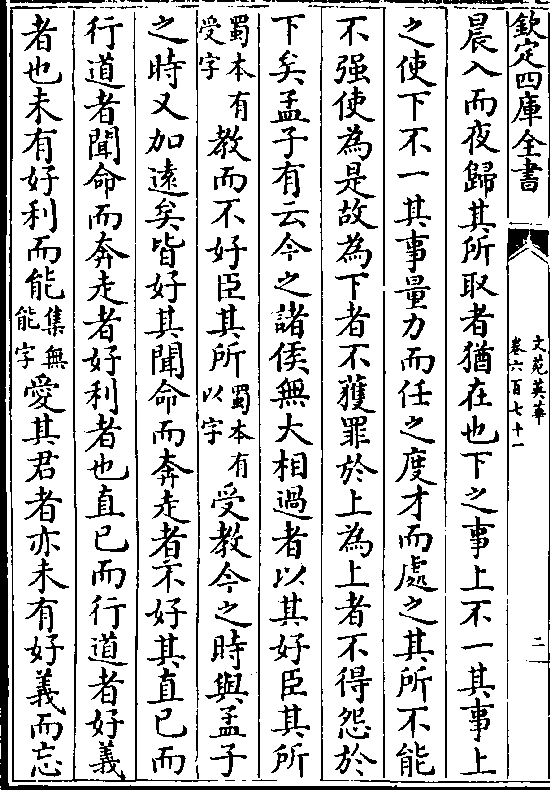 欽定四庫全書
文苑英華
卷六百七十一
二
晨入而夜歸其所取者猶在也下之事上不一其事上
之使下不一其事量力而任之度才而處之其所不能
不强使為是故為下者不獲罪於上為上者不得怨於
下矣孟子有云今之諸侯無大相過者以其好臣其所
蜀本有受字教而不好臣其所蜀本有以字受教今之時與孟子
之時又加遠矣皆好其聞命而奔走者不好其直已而
行道者聞命而奔走者好利者也直已而行道者好義
者也未有好利而能集無能字愛其君者亦未有好義而忘